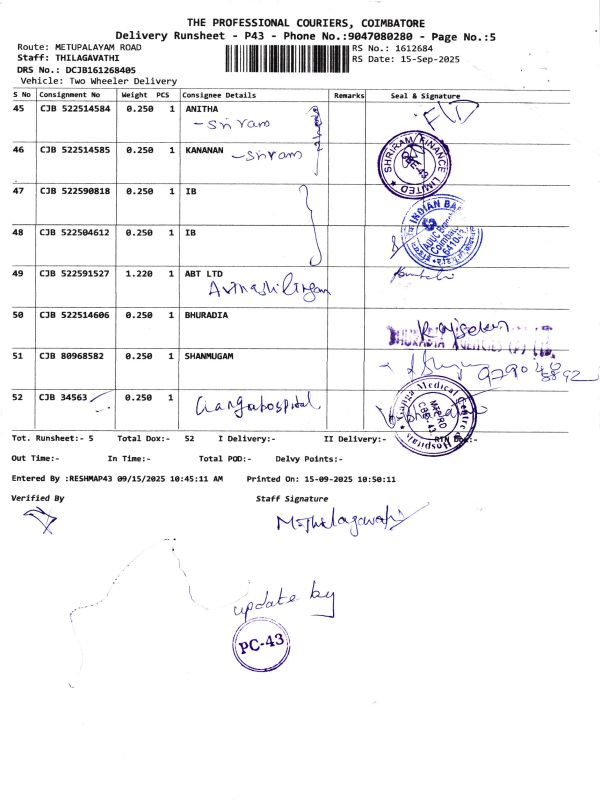 THE PROFESSIONAL COURIERS, COIMBATORE
Delivery Runsheet - P43 - Phone No.:9047080280 - Page No.:5
Route: METUPALAYAM ROAD RS No.: 1612684
Staff: THILAGAVATHI RS Date: 15-Sep-2025
DRS No.: DCJB161268405
Vehicle: Two Wheeler Delivery
S No Consignment No Weight PCS Consignee Details Remarks Seal & Signature
45 CJB 522514584 0.250 1 ANITHA
-Sri ram
46 CJB 522514585 0.250 1 KANANAN -Sriram
SHRIRAM FINANCE LIMITED
47 CJB 522590818 0.250 1 IB
INDIAN BANK
48 CJB 522504612 0.250 1 IB
49 CJB 522591527 1.220 1 ABT LTD
Avinashilingam
50 CJB 522514606 0.250 1 BHURADIA
51 CJB 80968582 0.250 1 SHANMUGAM
52 CJB 34563 0.250 1 Ganga hospital
Ganga Medical Centre & Hospitals
Tot. Runsheet:- 5 Total Dox:- 52 I Delivery:- II Delivery:- RTN Dox:-
Out Time:- In Time:- Total POD:- Delvy Points:-
Entered By :RESHMAP43 09/15/2025 10:45:11 AM Printed On: 15-09-2025 10:50:11
Verified By Staff Signature
M.Thilagavathi
update by
PC-43